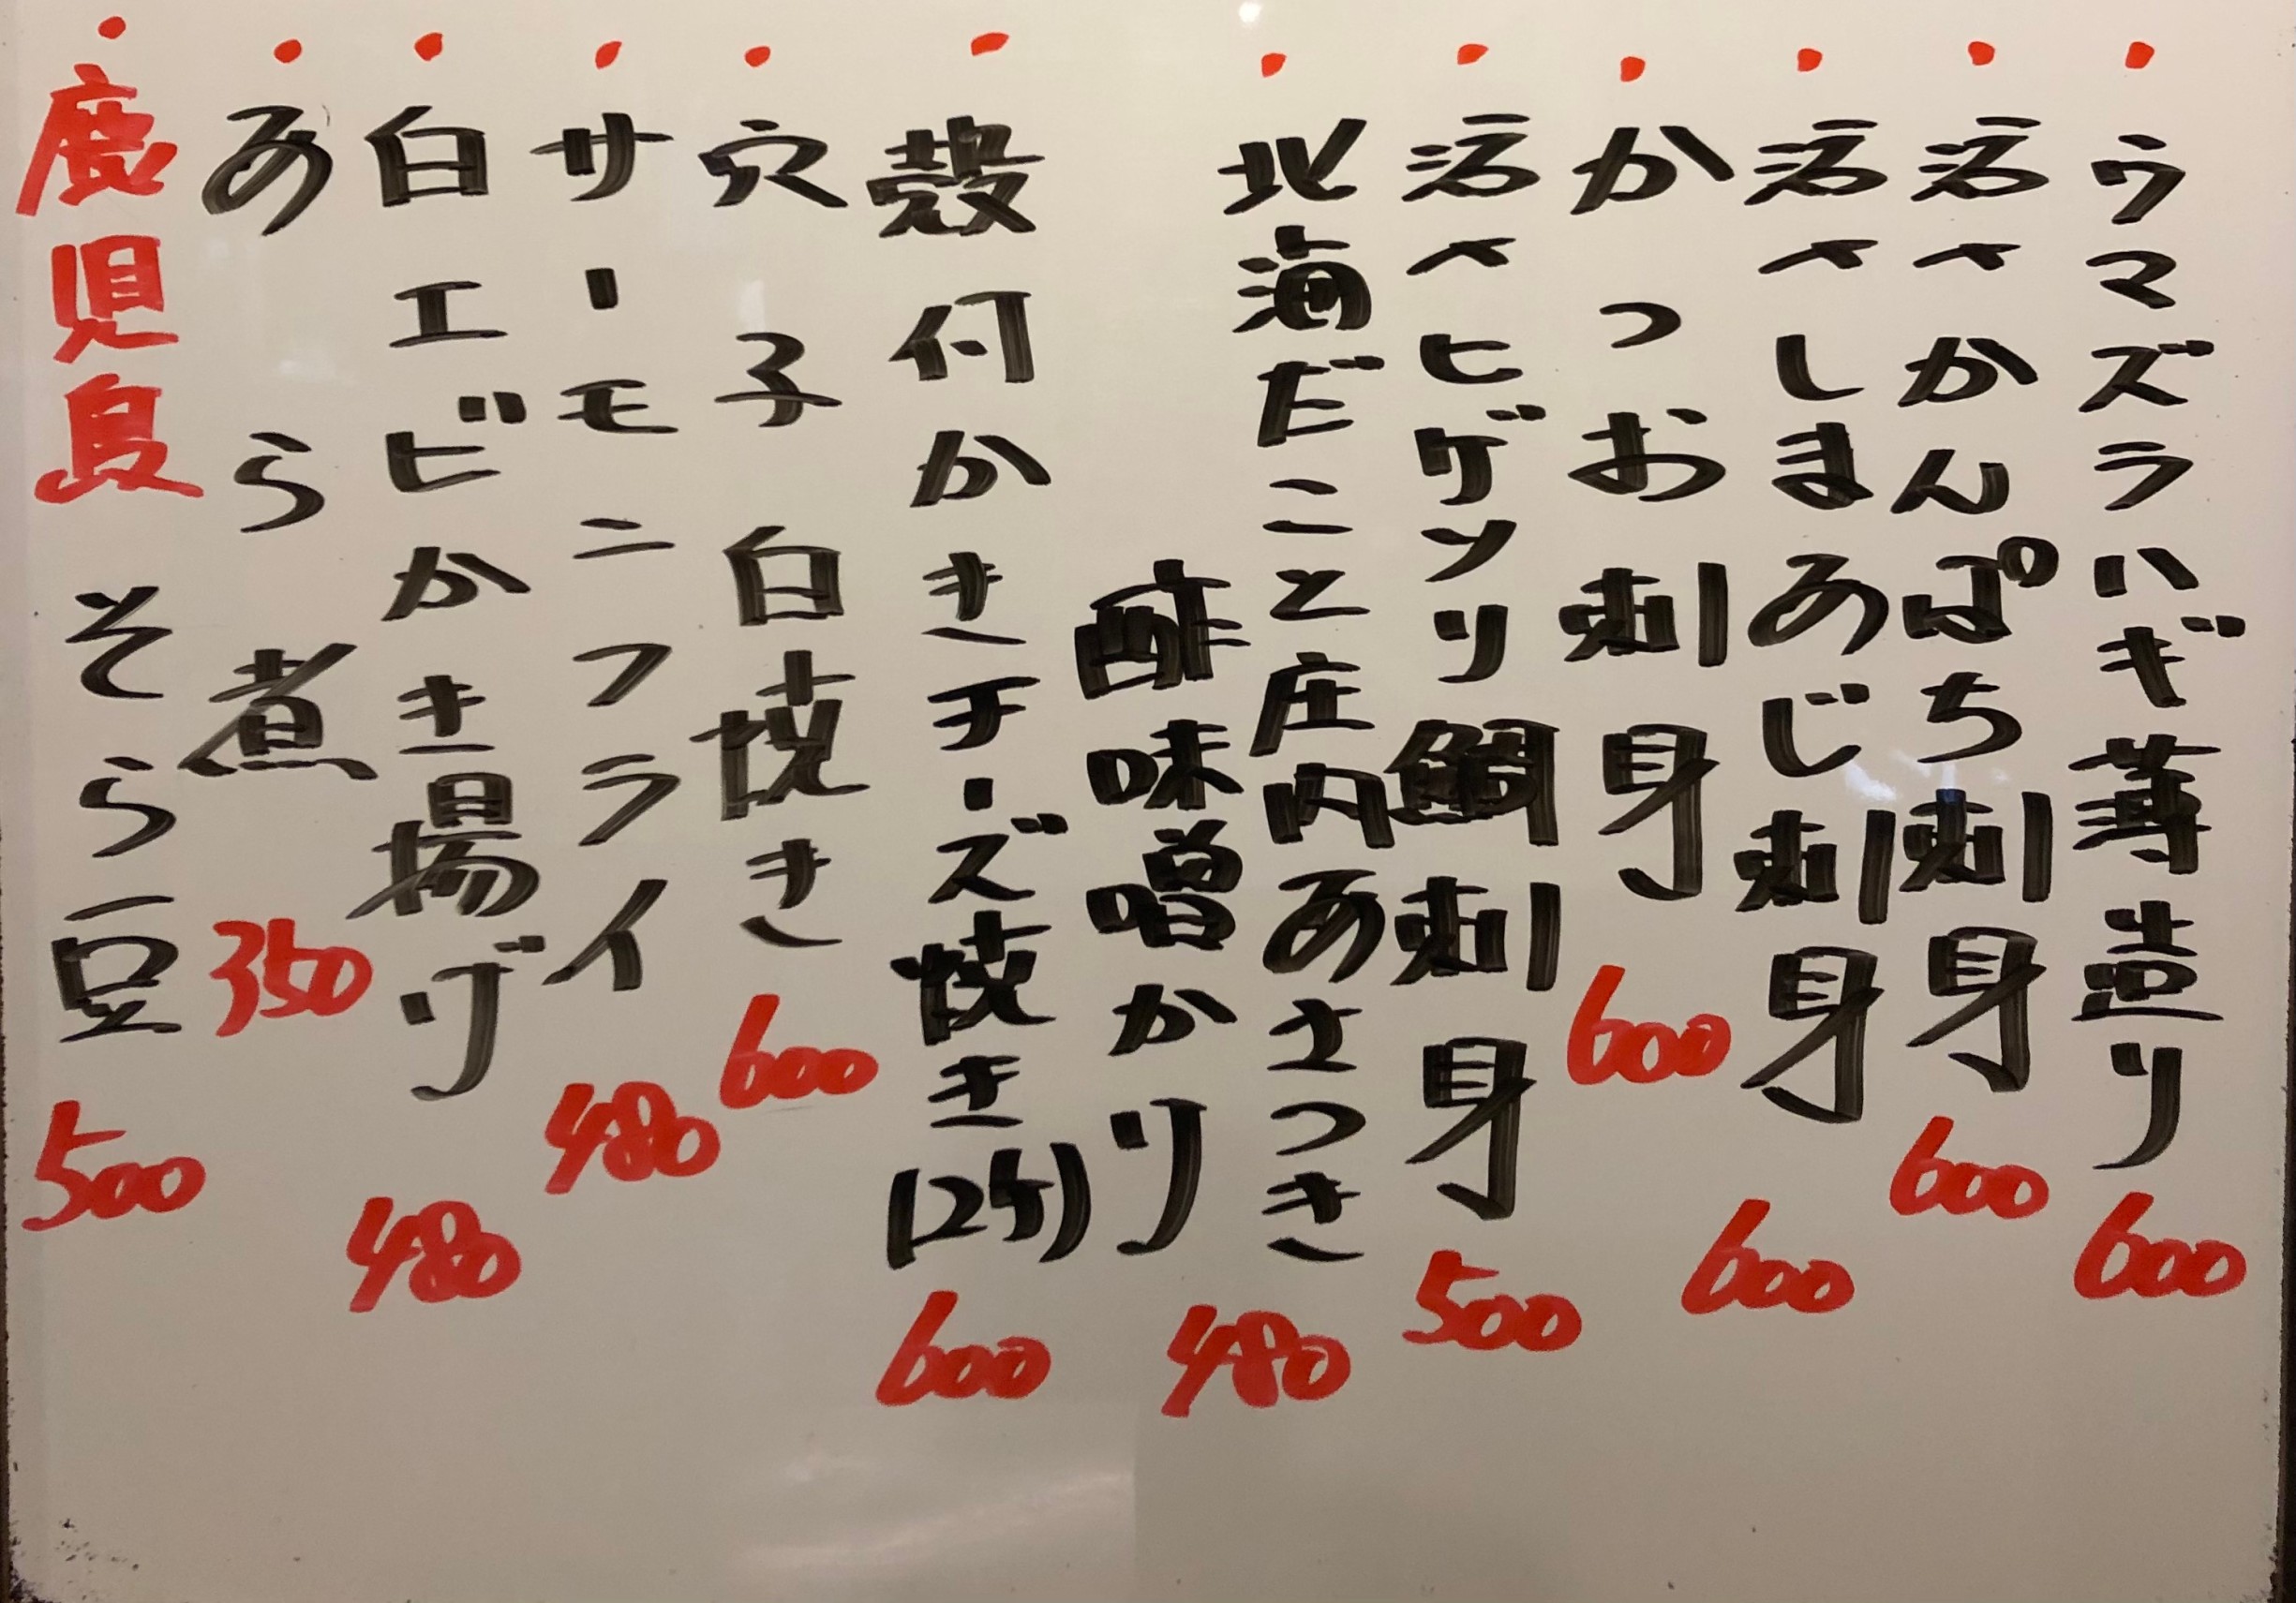 ・ウマズラハギ薄造り 600
・活〆かんぱち刺身 600
・活〆しまあじ刺身 600
・かつお刺身 600
・活〆ヒゲソリ鯛刺身 500
・北海だこと庄内あさつき
酢味噌かけ 480
・殻付かきチーズ焼き(2ケ) 600
・穴子白焼き 600
・サーモンフライ 480
・白エビかき揚げ 480
・あら煮 350
・鹿児島そら豆 500